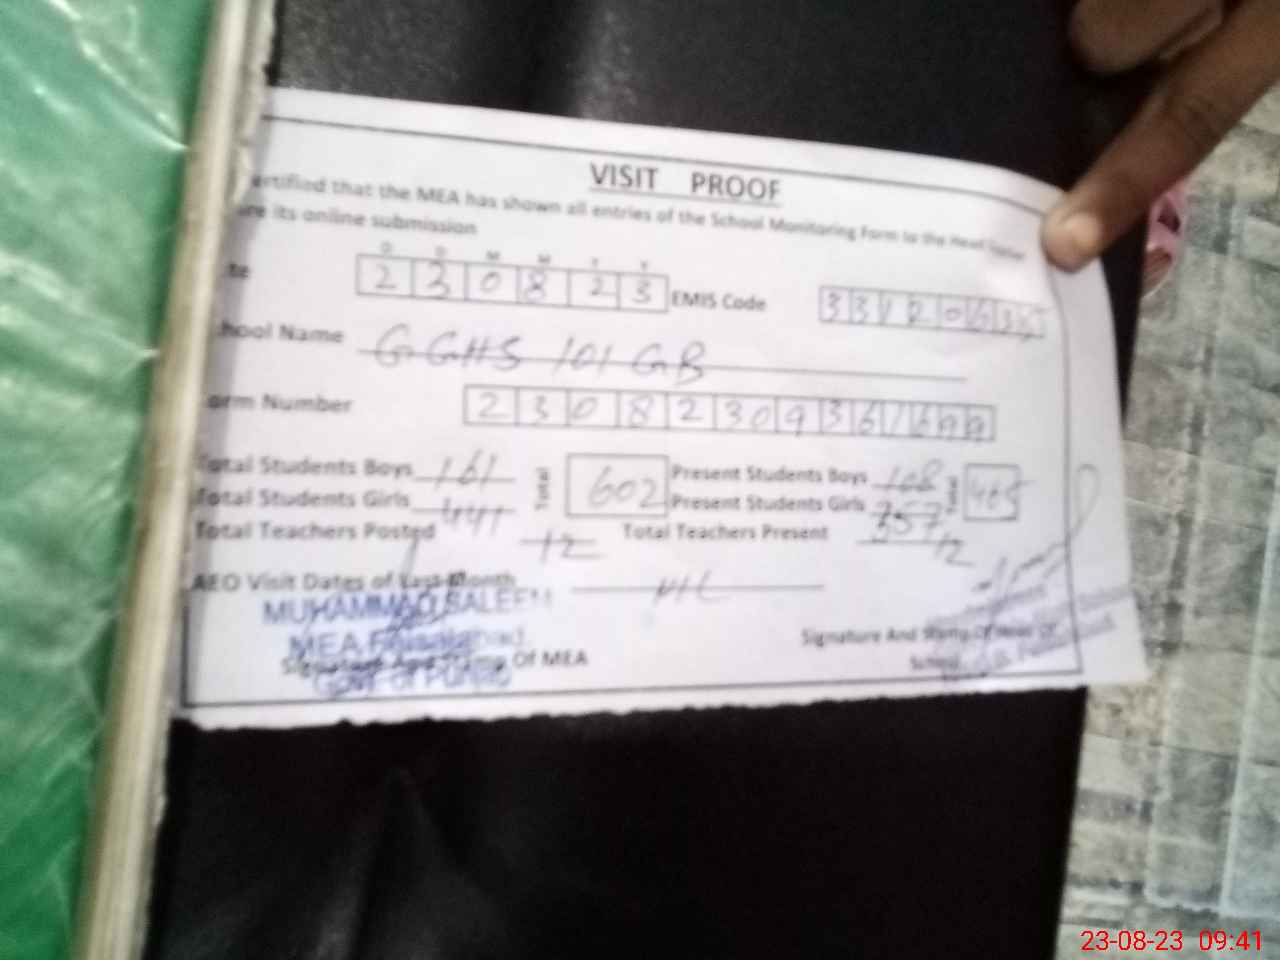 VISIT PROOF
ertified that the MEA has shown all entries of the School Monitoring Form to the Head
re its online submission
D D M M Y Y
te 2 3 0 8 2 3 EMIS Code 3 3 1 2 0 6 3
hool Name GGHS 101 GB
orm Number 2 3 0 8 2 3 0 9 3 6 1 6 9 9
Total Students Boys 161 Total 602 Present Students Boys 108 Total 465
Total Students Girls 441 Present Students Girls 357
Total Teachers Posted 12 Total Teachers Present 12
AEO Visit Dates of Last Month NIL
MUHAMMAD SALEEM
MEA Faisalabad
Govt of Punjab
Signature And Stamp Of MEA
Signature And Stamp Of Head Of
School
23-08-23 09:41